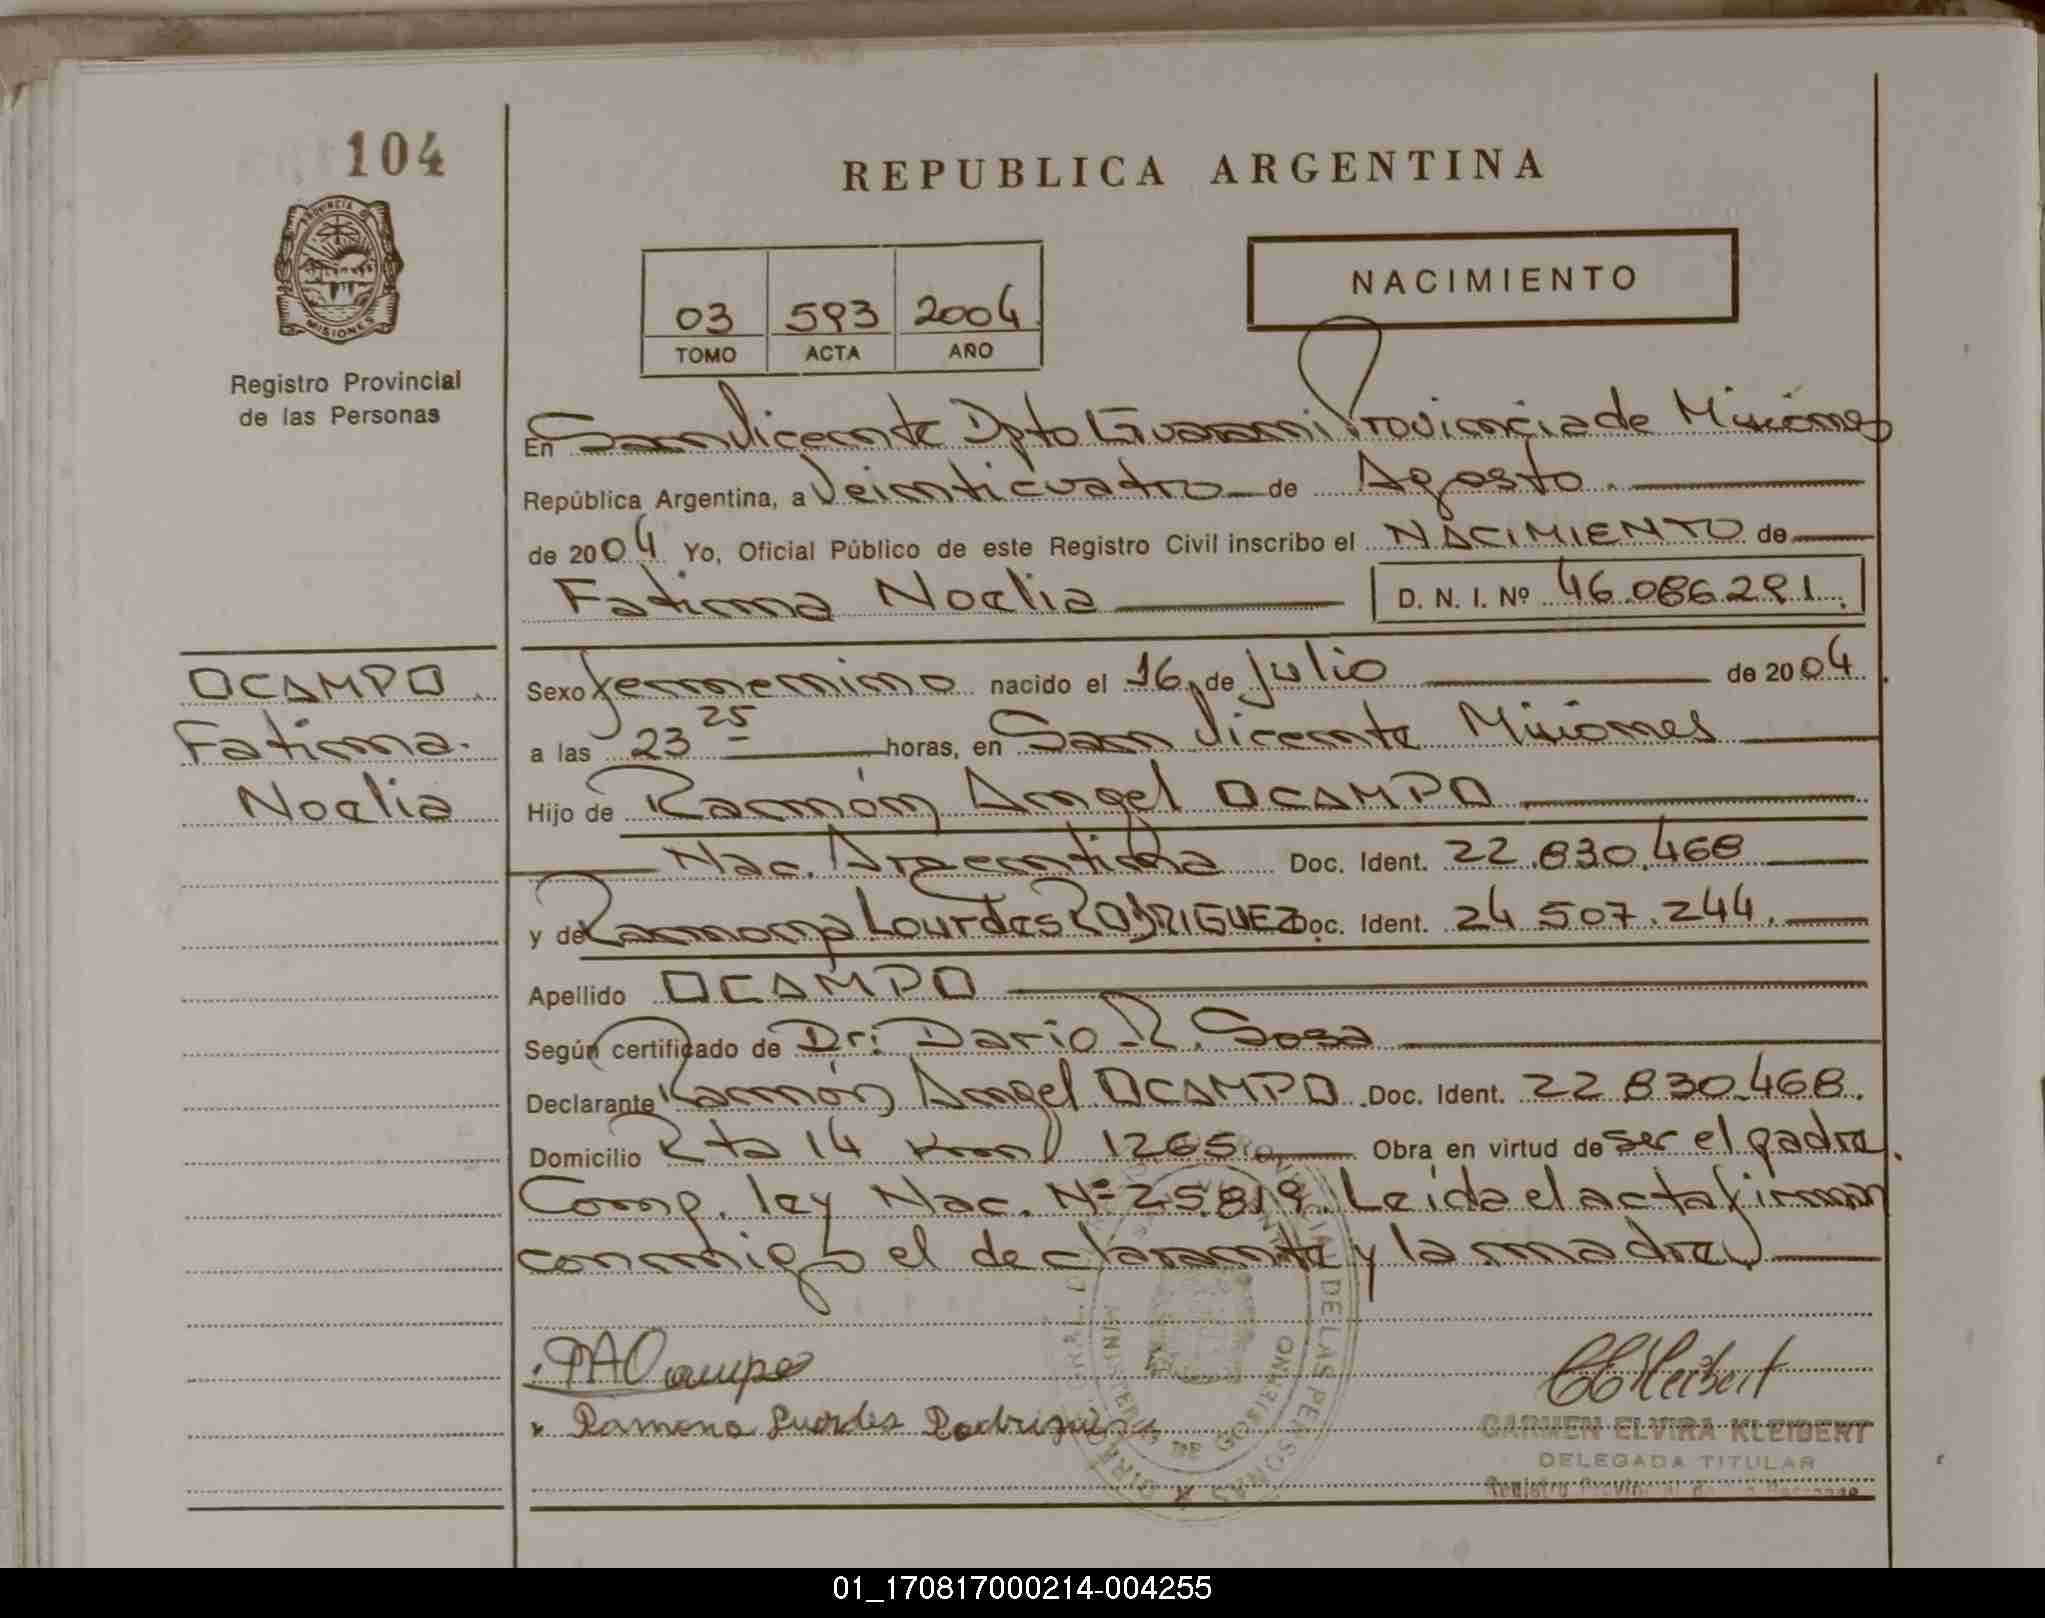 104
PROVINCIA DE
MISIONES
Registro Provincial
de las Personas
REPUBLICA ARGENTINA
NACIMIENTO
03 593 2004
TOMO ACTA AÑO
En San Vicente Dpto Guarani Provincia de Misiones
República Argentina, a Veinticuatro de Agosto
de 2004 Yo, Oficial Público de este Registro Civil inscribo el NACIMIENTO de
Fatima Noelia D. N. I. Nº 46.086.291.
OCAMPO
Fatima
Noelia
Sexo femenino nacido el 16 de Julio de 2004
a las 23 25 horas, en San Vicente Misiones
Hijo de Ramón Angel OCAMPO
Nac. Argentina Doc. Ident. 22.830.468
y de Ramona Lourdes RODRIGUEZ Doc. Ident. 24.507.244.
Apellido OCAMPO
Según certificado de Dr. Dario R. Sosa
Declarante Ramón Angel OCAMPO Doc. Ident. 22.830.468.
Domicilio Rta 14 Km 1265 Obra en virtud de ser el padre.
Comp. ley Nac. Nº 25.819. Leída el acta firman
conmigo el declarante y la madre
RAOcampo
Ramona Lurdes Rodriguez
CEKleibert
CARMEN ELVIRA KLEIBERT
DELEGADA TITULAR
Registro Provincial de las Personas
MINISTERIO DE GOBIERNO
DE LAS PERSONAS
01_170817000214-004255